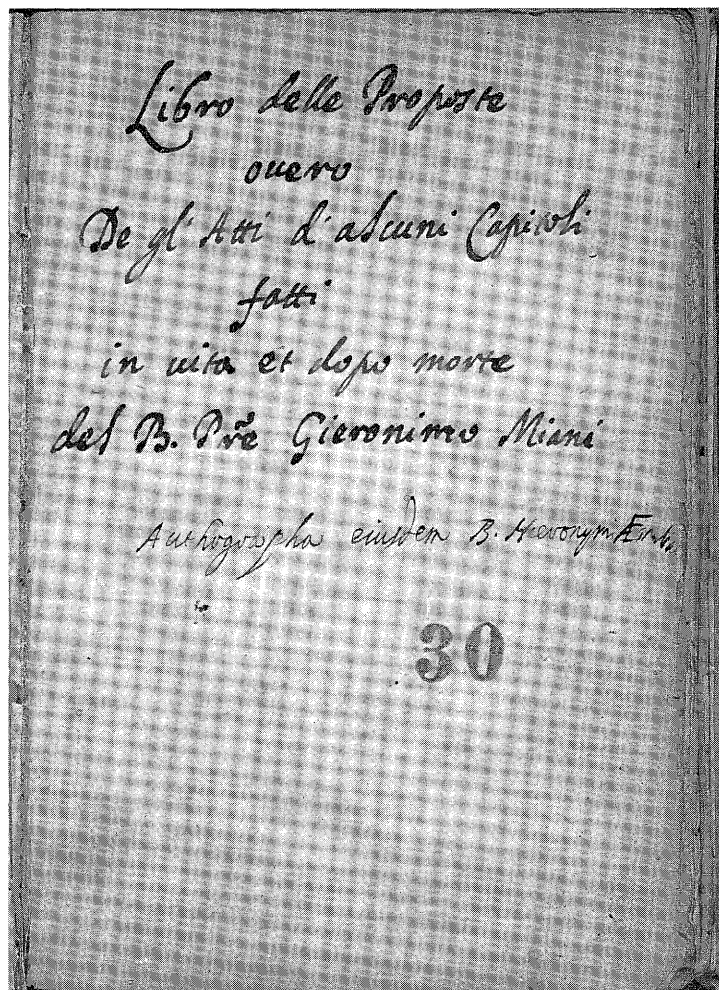 Libro delle Proposte
ouero
De gl' Atti d'alcuni Capitoli
fatti
in uita et dopo morte
del B. Prẽ Gieronimo Miani
Authographa eiusdem B. Hieronym
30